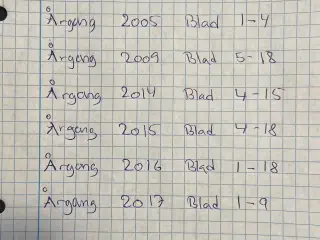 Årgang 2005 Blad 1-4
Årgang 2009 Blad 5-18
Årgang 2014 Blad 4-15
Årgang 2015 Blad 4-18
Årgang 2016 Blad 1-18
Årgang 2017 Blad 1-9